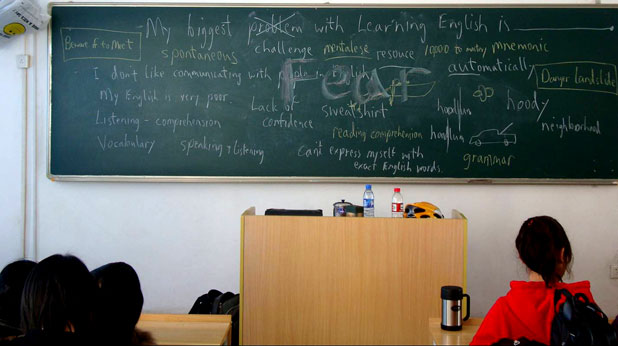 My biggest problem with Learning English is
Beware of to Meet
spontaneous challenge mentalese resouce 10000 to mathy mnemonic
I don't like communicating with people English
Fear
automatically
Danger landslide
My English is very poor
Lack of confidence
sweatshirt
hoodlum
hoody
neighborhood
Listening - comprehension
reading comprehension
hoodlum
Vocabulary
speaking + listening
Can't express myself with exact English words.
grammar